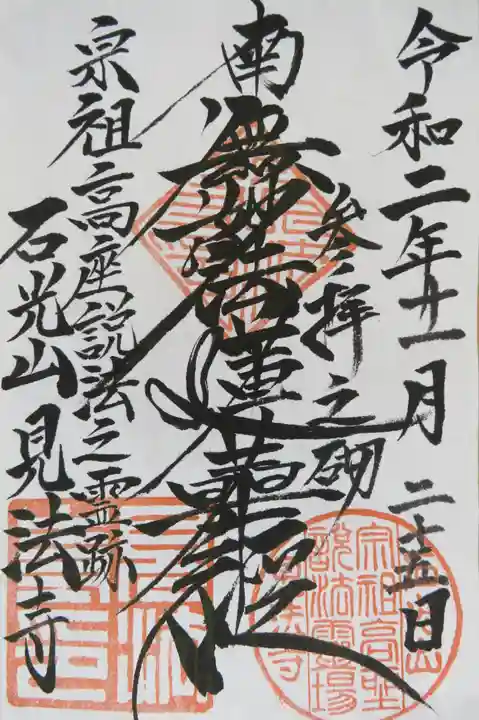 令和二年十一月二十五日
参拝之砌
南無妙法蓮華経
宗祖高座説法之霊跡
石光山見法寺
宗祖高座
説法霊場
見法寺